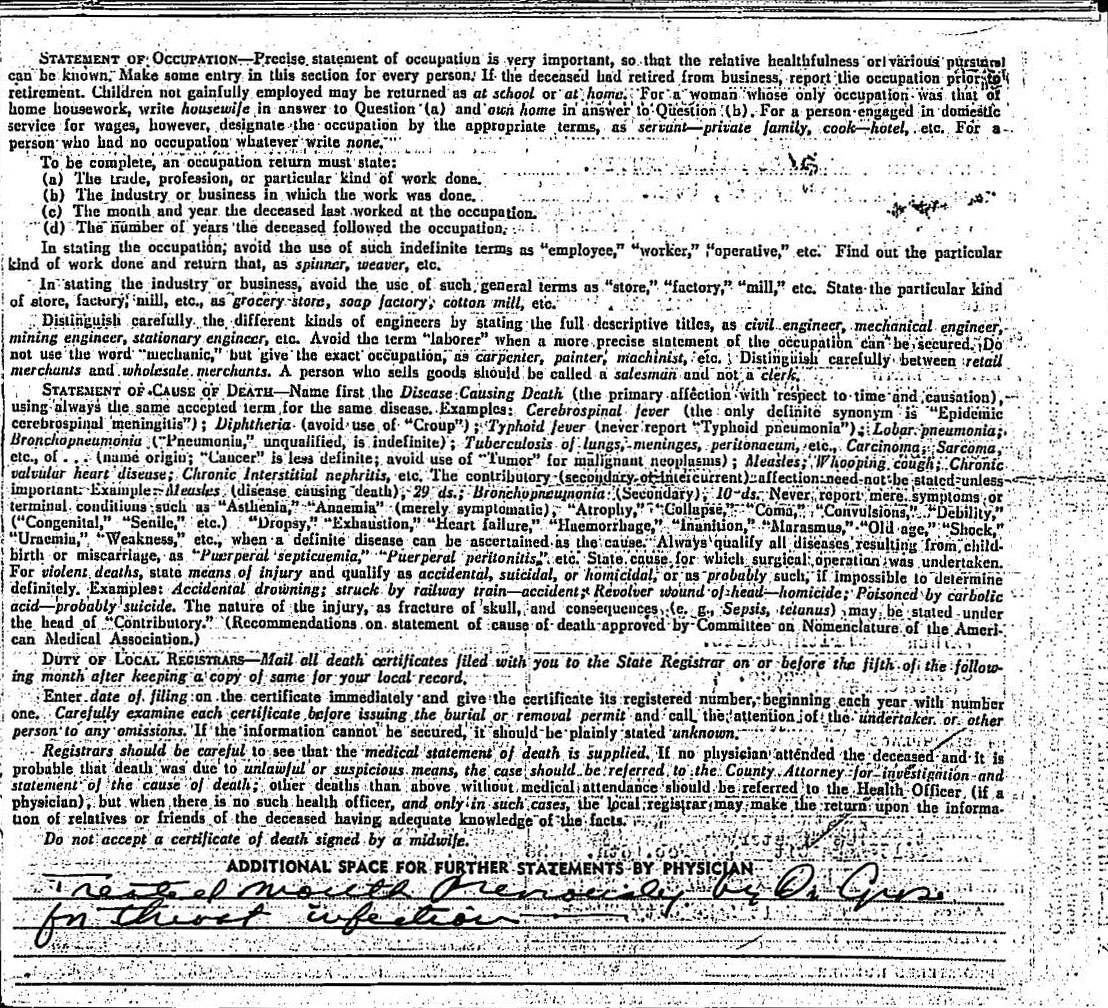 STATEMENT OF OCCUPATION—Precise statement of occupation is very important, so that the relative healthfulness of various pursuits
can be known. Make some entry in this section for every person. If the deceased had retired from business, report the occupation prior to
retirement. Children not gainfully employed may be returned as at school or at home. For a woman whose only occupation was that of
home housework, write housewife in answer to Question (a) and own home in answer to Question (b). For a person engaged in domestic
service for wages, however, designate the occupation by the appropriate terms, as servant—private family, cook—hotel, etc. For a
person who had no occupation whatever write none.
To be complete, an occupation return must state:
(a) The trade, profession, or particular kind of work done.
(b) The industry or business in which the work was done.
(c) The month and year the deceased last worked at the occupation.
(d) The number of years the deceased followed the occupation.
In stating the occupation, avoid the use of such indefinite terms as "employee," "worker," "operative," etc. Find out the particular
kind of work done and return that, as spinner, weaver, etc.
In stating the industry or business, avoid the use of such general terms as "store," "factory," "mill," etc. State the particular kind
of store, factory, mill, etc., as grocery store, soap factory, cotton mill, etc.
Distinguish carefully the different kinds of engineers by stating the full descriptive titles, as civil engineer, mechanical engineer,
mining engineer, stationary engineer, etc. Avoid the term "laborer" when a more precise statement of the occupation can be secured. Do
not use the word "mechanic," but give the exact occupation, as carpenter, painter, machinist, etc. Distinguish carefully between retail
merchants and wholesale merchants. A person who sells goods should be called a salesman and not a clerk.
STATEMENT OF CAUSE OF DEATH—Name first the Disease Causing Death (the primary affection with respect to time and causation),
using always the same accepted term for the same disease. Examples: Cerebrospinal fever (the only definite synonym is "Epidemic
cerebrospinal meningitis"); Diphtheria (avoid use of "Croup"); Typhoid fever (never report "Typhoid pneumonia"); Lobar pneumonia;
Bronchopneumonia ("Pneumonia," unqualified, is indefinite); Tuberculosis of lungs, meninges, peritonaeum, etc., Carcinoma, Sarcoma,
etc., of . . . (name origin; "Cancer" is less definite; avoid use of "Tumor" for malignant neoplasms); Measles; Whooping cough; Chronic
valvular heart disease; Chronic Interstitial nephritis, etc. The contributory (secondary or intercurrent) affection need not be stated unless
important. Example: Measles (disease causing death), 29 ds.; Bronchopneumonia (Secondary), 10 ds. Never report mere symptoms or
terminal conditions such as "Asthenia," "Anaemia" (merely symptomatic), "Atrophy," "Collapse," "Coma," "Convulsions," "Debility,"
("Congenital," "Senile," etc.) "Dropsy," "Exhaustion," "Heart failure," "Haemorrhage," "Inanition," "Marasmus," "Old age," "Shock,"
"Uraemia," "Weakness," etc., when a definite disease can be ascertained as the cause. Always qualify all diseases resulting from child-
birth or miscarriage, as "Puerperal septicaemia," "Puerperal peritonitis," etc. State cause for which surgical operation was undertaken.
For violent deaths, state means of injury and qualify as accidental, suicidal, or homicidal, or as probably such, if impossible to determine
definitely. Examples: Accidental drowning; struck by railway train—accident; Revolver wound of head—homicide; Poisoned by carbolic
acid—probably suicide. The nature of the injury, as fracture of skull, and consequences (e. g., Sepsis, tetanus) may be stated under
the head of "Contributory." (Recommendations on statement of cause of death approved by Committee on Nomenclature of the Ameri-
can Medical Association.)
DUTY OF LOCAL REGISTRARS—Mail all death certificates filed with you to the State Registrar on or before the fifth of the follow-
ing month after keeping a copy of same for your local record.
Enter date of filing on the certificate immediately and give the certificate its registered number, beginning each year with number
one. Carefully examine each certificate before issuing the burial or removal permit and call the attention of the undertaker or other
person to any omissions. If the information cannot be secured, it should be plainly stated unknown.
Registrars should be careful to see that the medical statement of death is supplied. If no physician attended the deceased and it is
probable that death was due to unlawful or suspicious means, the case should be referred to the County Attorney for investigation and
statement of the cause of death; other deaths than above without medical attendance should be referred to the Health Officer (if a
physician), but when there is no such health officer, and only in such cases, the local registrar may make the return upon the informa-
tion of relatives or friends of the deceased having adequate knowledge of the facts.
Do not accept a certificate of death signed by a midwife.
ADDITIONAL SPACE FOR FURTHER STATEMENTS BY PHYSICIAN
Treated mouth previously by Dr
for throat infection